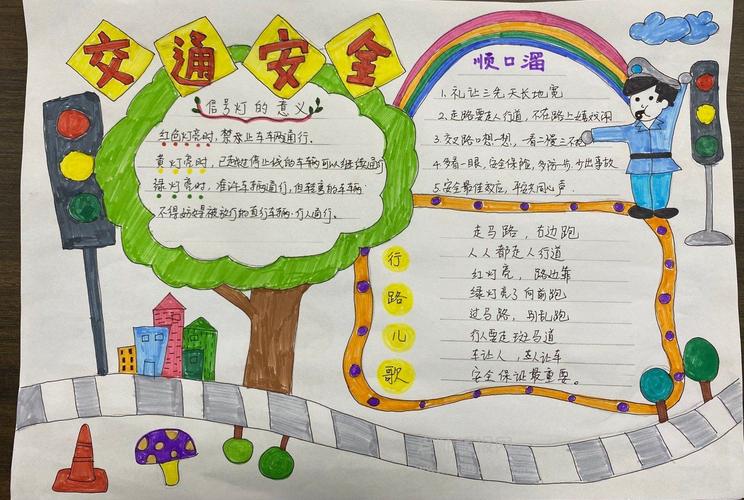 交通安全
信号灯的意义
红色灯亮时,禁止车车两通行.
黄灯亮时,已越过停止线的车辆可以继续通行
绿灯亮时,准许车辆通行,但转弯的车辆
不得妨碍被放行的直行车辆.行人通行.
顺口溜
1.礼让三先天长地宽
2.走路要走人行道,不在路上嬉戏闹
3.交叉路口想一想,一看二慢三不
4.多看一眼,安全保险,多防一步,少出事故
5.安全最佳效应,平安共同心声.
行路儿歌
走马路,右边跑
人人都走人行道
红灯亮,路边靠
绿灯亮了向前跑
过马路,别乱跑
行人要走斑马道
车让人,人让车
安全保证最重要。